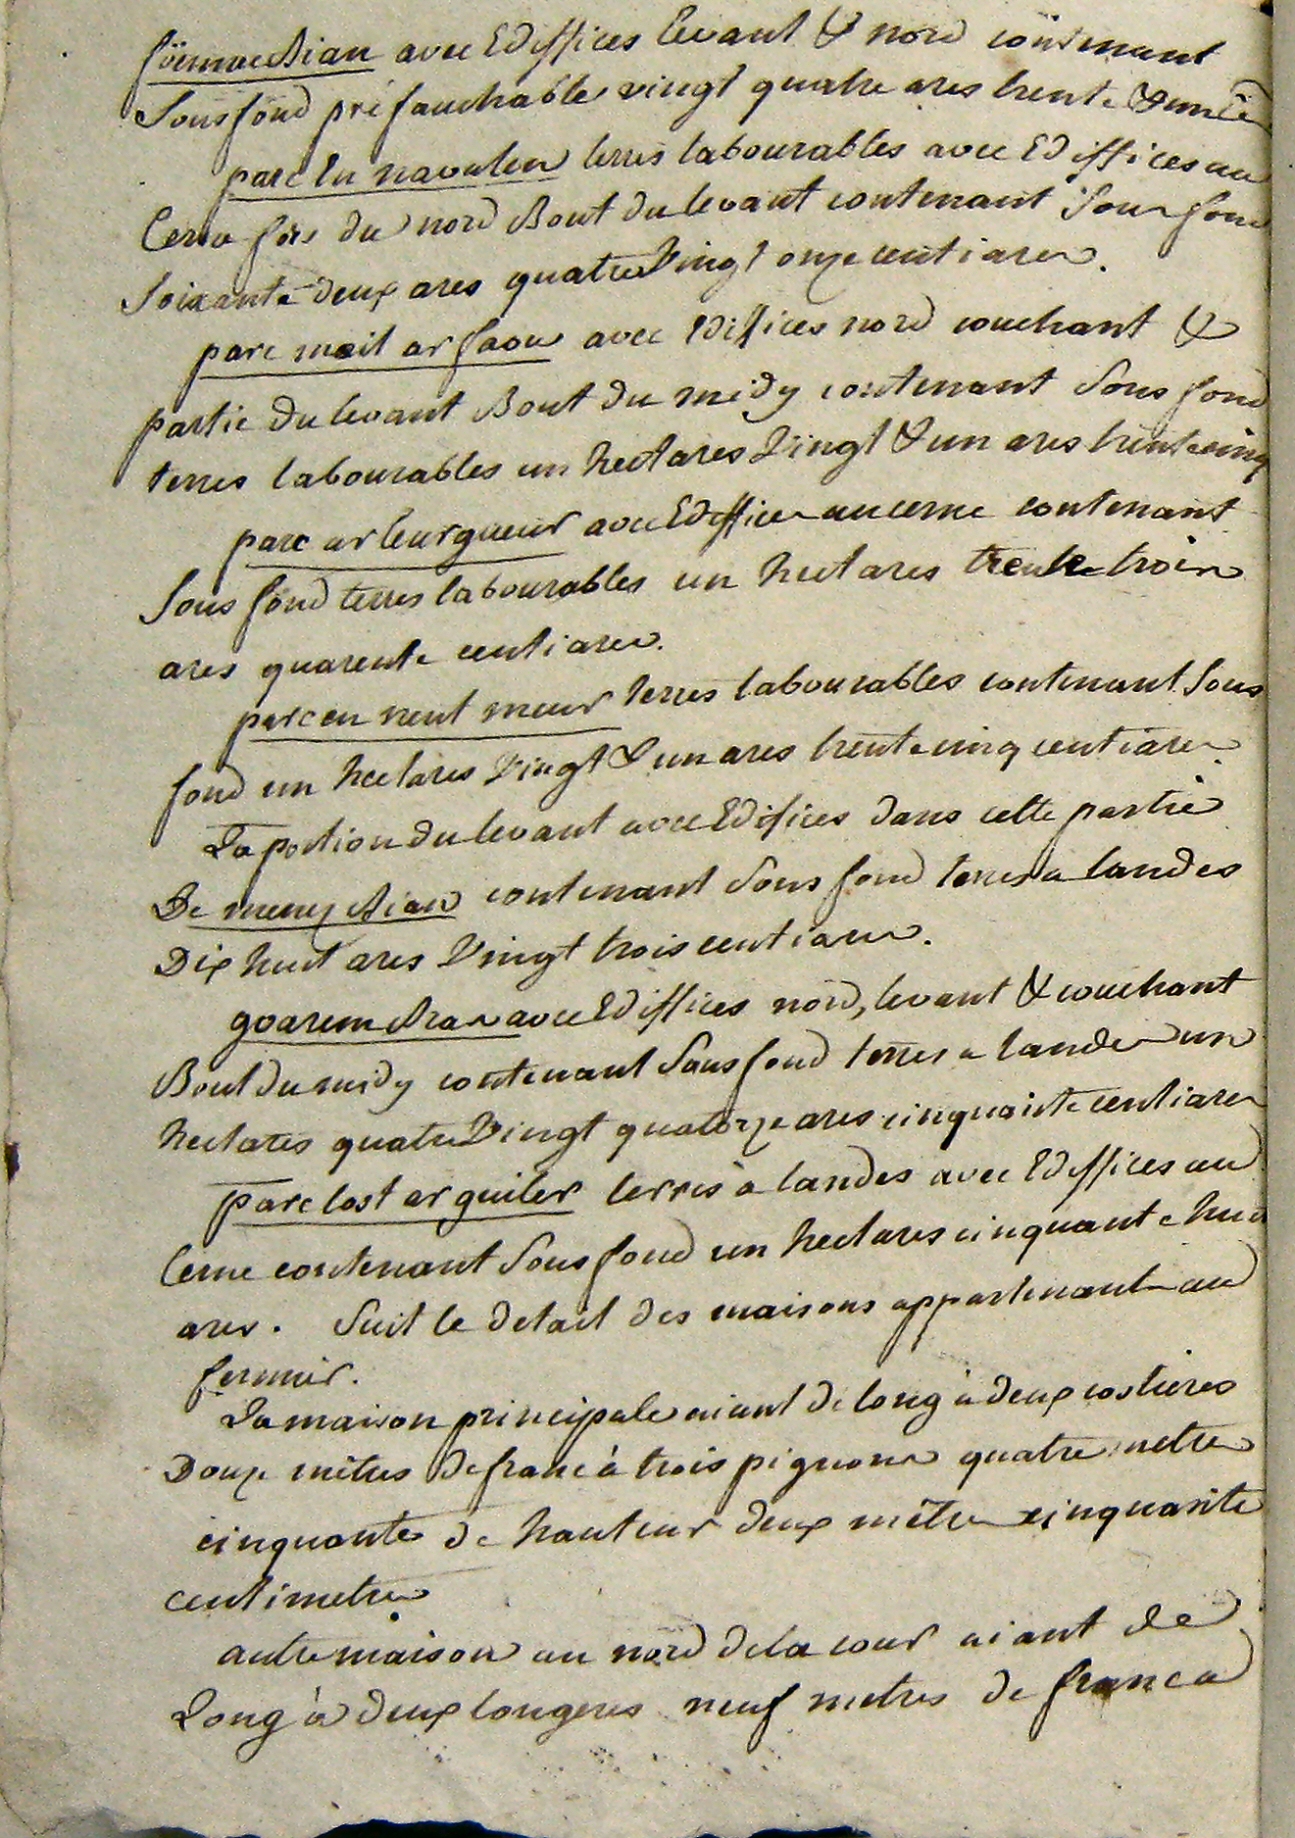 foënnec Bian avec Ediffices levant & nord contenant
Sous fond pré fauchable vingt quatre ares trente & un
parc en navalen terres labourables avec Ediffices au
Cerne fors du nord Bout du levant contenant Sous fond
Soixante deux ares quatre Vingt onze centiares.
parc meil ar faou avec Edifices nord couchant &
partie du levant Bout du midy contenant Sous fond
terres labourables un hectares Vingt & un ares trente cinq
parc ar leurgueur avec Ediffices au cerne contenant
Sous fond terres labourables un hectares trente trois
ares quarente centiares.
parc en neut meur terres labourables contenant Sous
fond un hectares Vingt & un ares trente cinq centiares.
La portion du levant avec Edifices dans cette partie
De menez Bian contenant Sous fond terres a landes
Dix huit ares Vingt trois centiares.
goarem Bras avec Ediffices nord, levant & couchant
Bout du midy contenant Sous fond terres a landes un
hectares quatre Vingt quatorze ares cinquante centiares
parc lost ar guiler terres à landes avec Ediffices au
Cerne contenant Sous fond un hectares cinquante huit
ares. Suit le detail des maisons appartenant au
fermier.
La maison principale aiant de long à deux costieres
Douze mêtres de franc à trois pignons quatre metres
cinquante de hauteur deux mêtres cinquante
centimetres
autre maison au nord de la cour aiant de
Long à deux longeres neuf metres de franc a